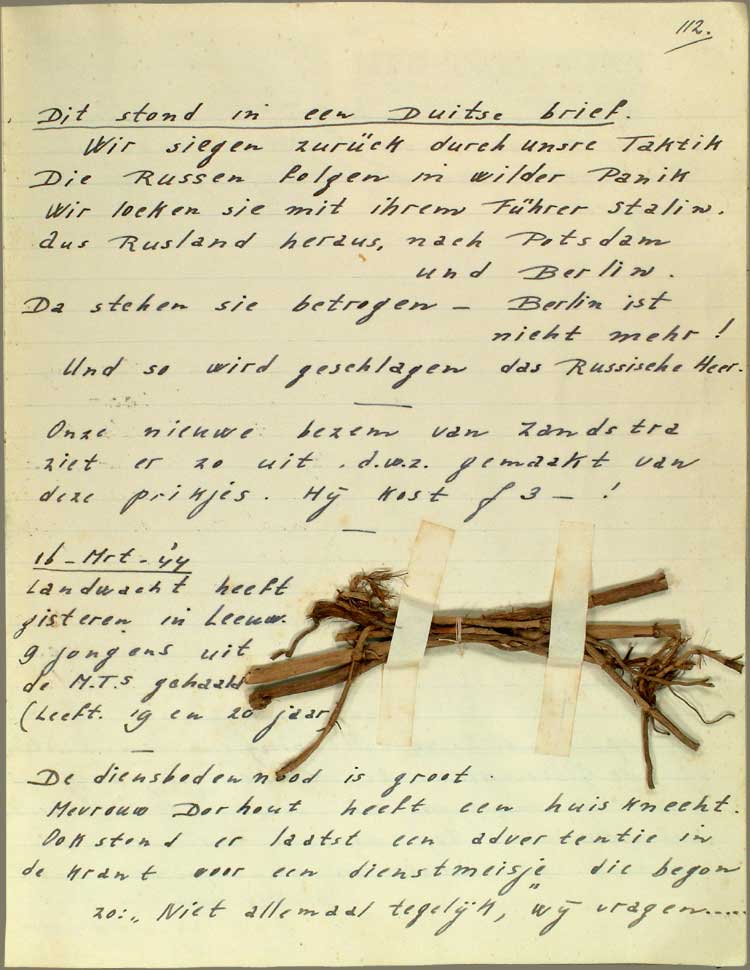 112.
Dit stond in een Duitse brief.
Wir siegen zurück durch unsre Taktik
Die Russen folgen in wilder Panik
Wir locken sie mit ihrem Führer Stalin.
aus Rusland heraus, nach Potsdam
und Berlin.
Da stehen sie betrogen – Berlin ist
nicht mehr!
Und so wird geschlagen das Russische Heer.
Onze nieuwe bezem van Zandstra
ziet er zo uit. d.w.z. gemaakt van
deze prikjes. Hÿ kost f 3 – !
16 – Mrt – '44
Landwacht heeft
gisteren in Leeuw.
9 jongens uit
de M.T.S gehaald
(Leeft. 19 en 20 jaar)
De diensboden nood is groot.
Mevrouw Dorhout heeft een huisknecht.
Ook stond er laatst een advertentie in
de krant voor een dienstmeisje die begon
zo: „Niet allemaal tegelÿk," wÿ vragen.....